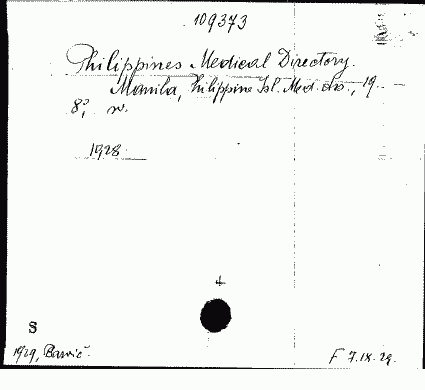 109373
Philippines Medical Directory.
Manila, Philippine Isl. Med. As., 19
8°,
1928
S
1929,
F 7.IX.29.